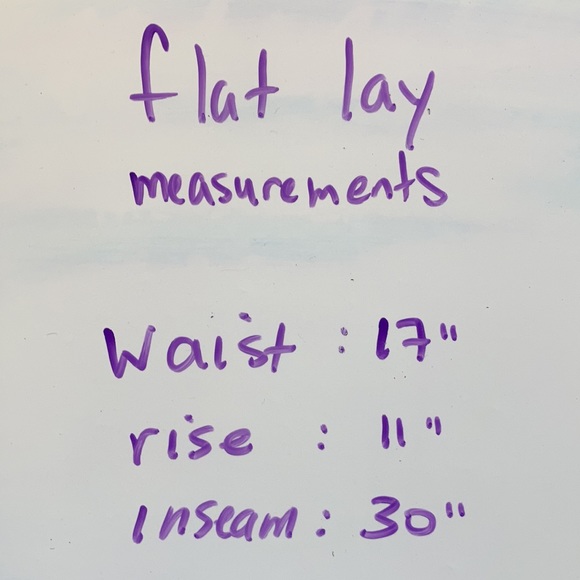 flat lay
measurements
Waist : 17"
rise : 11"
Inseam : 30"